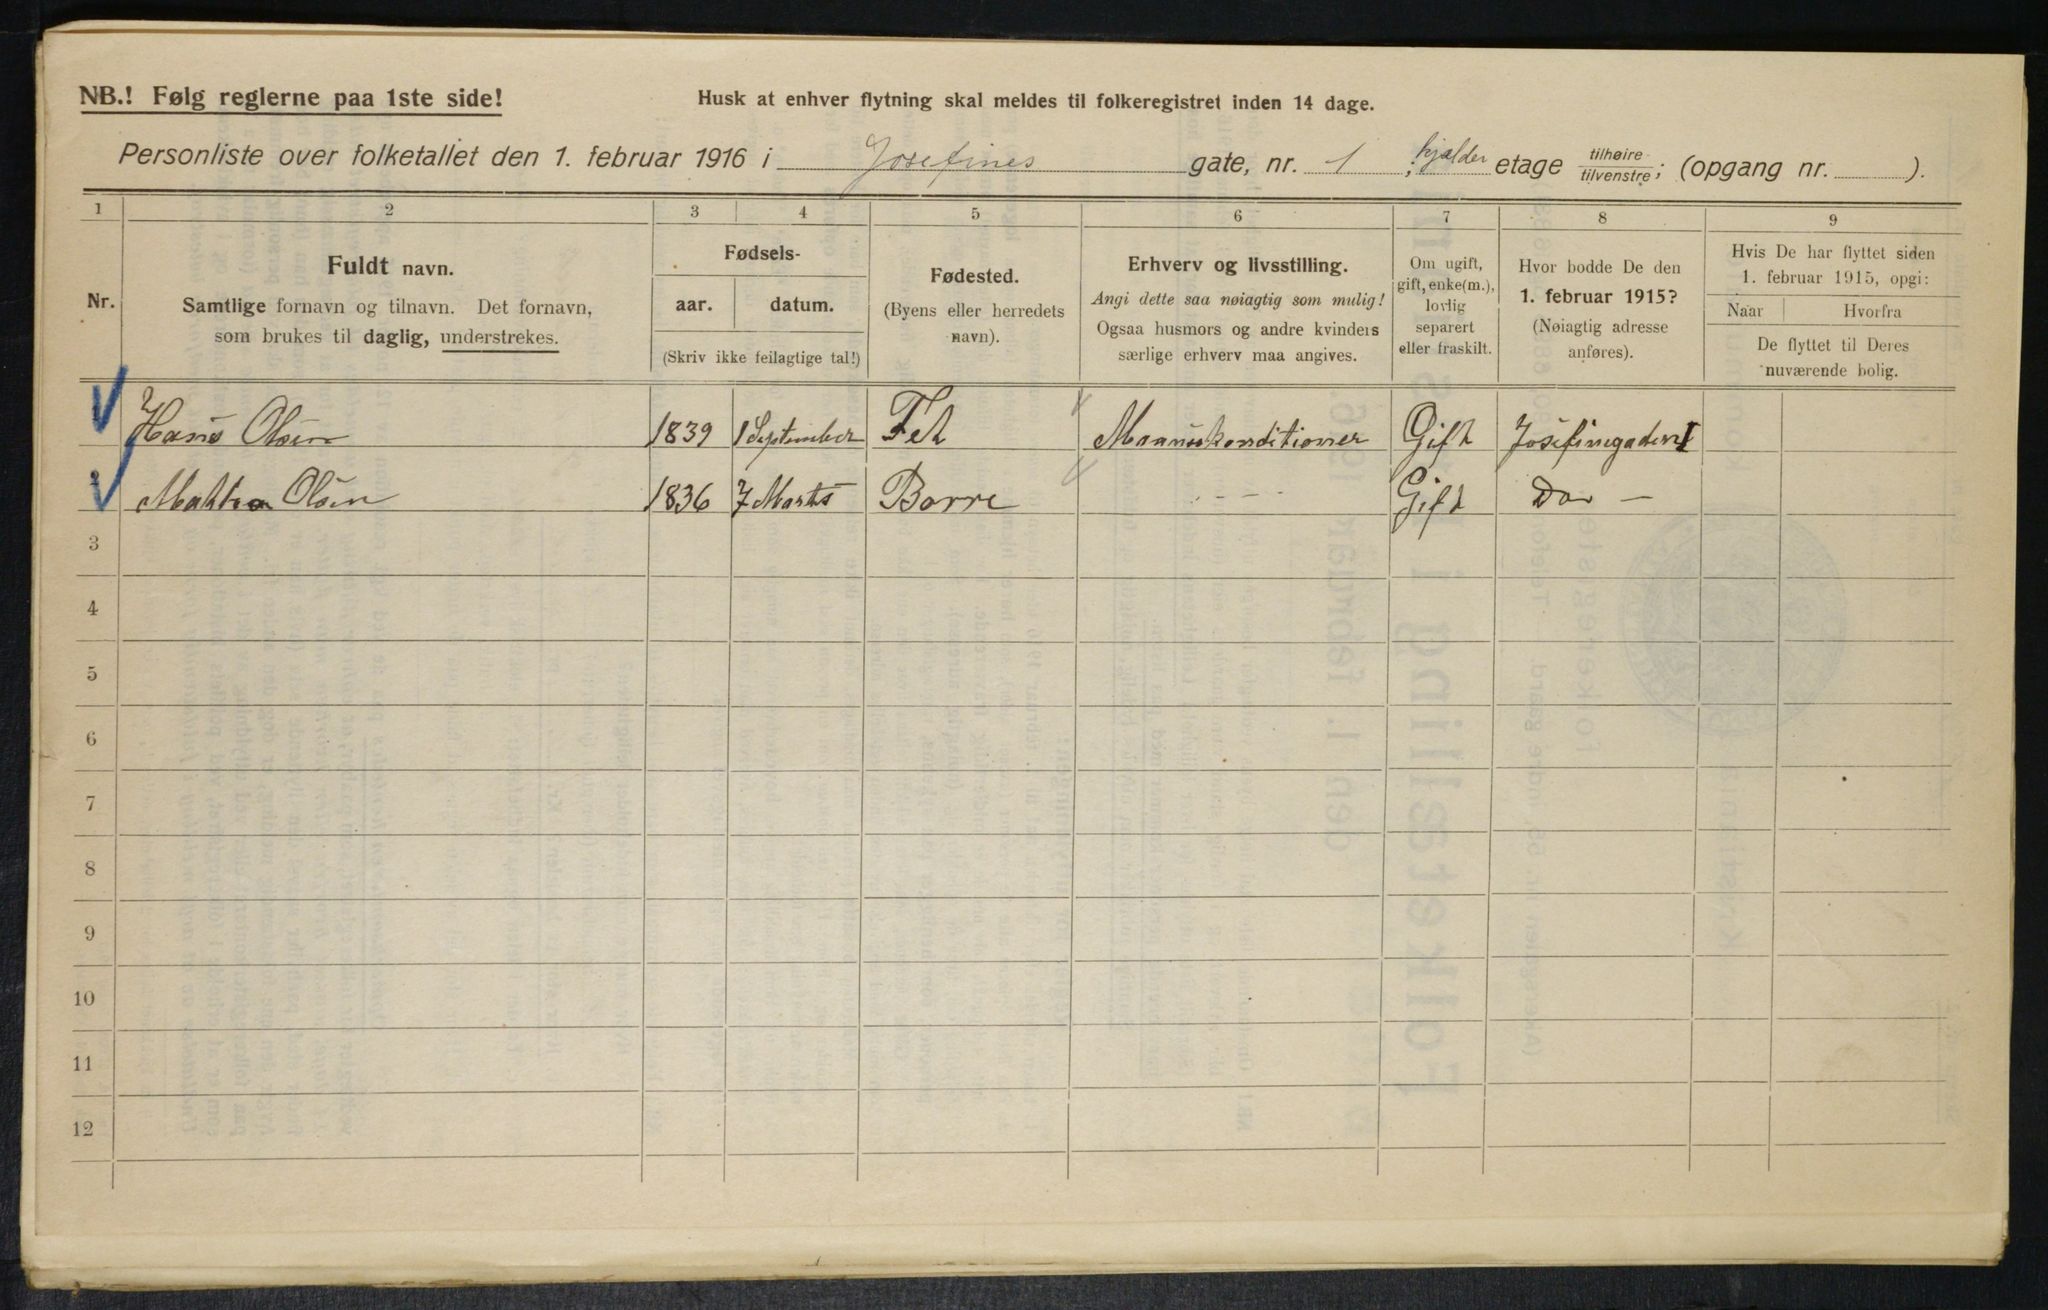 NB.! Følg reglerne paa 1ste side!
Husk at enhver flytning skal meldes til folkeregistret inden 14 dage.
Personliste over folketallet den 1. februar 1916 i Josefines gate, nr. 1, kjælder etage tilhøire / tilvenstre; (opgang nr. ).
1 2 3 4 5 6 7 8 9
Nr.
Fuldt navn.
Samtlige fornavn og tilnavn. Det fornavn,
som brukes til daglig, understrekes.
Fødsels-
aar. datum.
(Skriv ikke feilagtige tal!)
Fødested.
(Byens eller herredets
navn).
Erhverv og livsstilling.
Angi dette saa nøiagtig som mulig!
Ogsaa husmors og andre kvinders
særlige erhverv maa angives.
Om ugift,
gift, enke(m.),
lovlig
separert
eller fraskilt.
Hvor bodde De den
1. februar 1915?
(Nøiagtig adresse
anføres).
Hvis De har flyttet siden
1. februar 1915, opgi:
Naar Hvorfra
De flyttet til Deres
nuværende bolig.
Hans Olsen 1839 1 September Fet Gift Josefinegaden 1
Olsen 1836 7 Marts Borre - - - Gift Do —
3
4
5
6
7
8
9
10
11
12